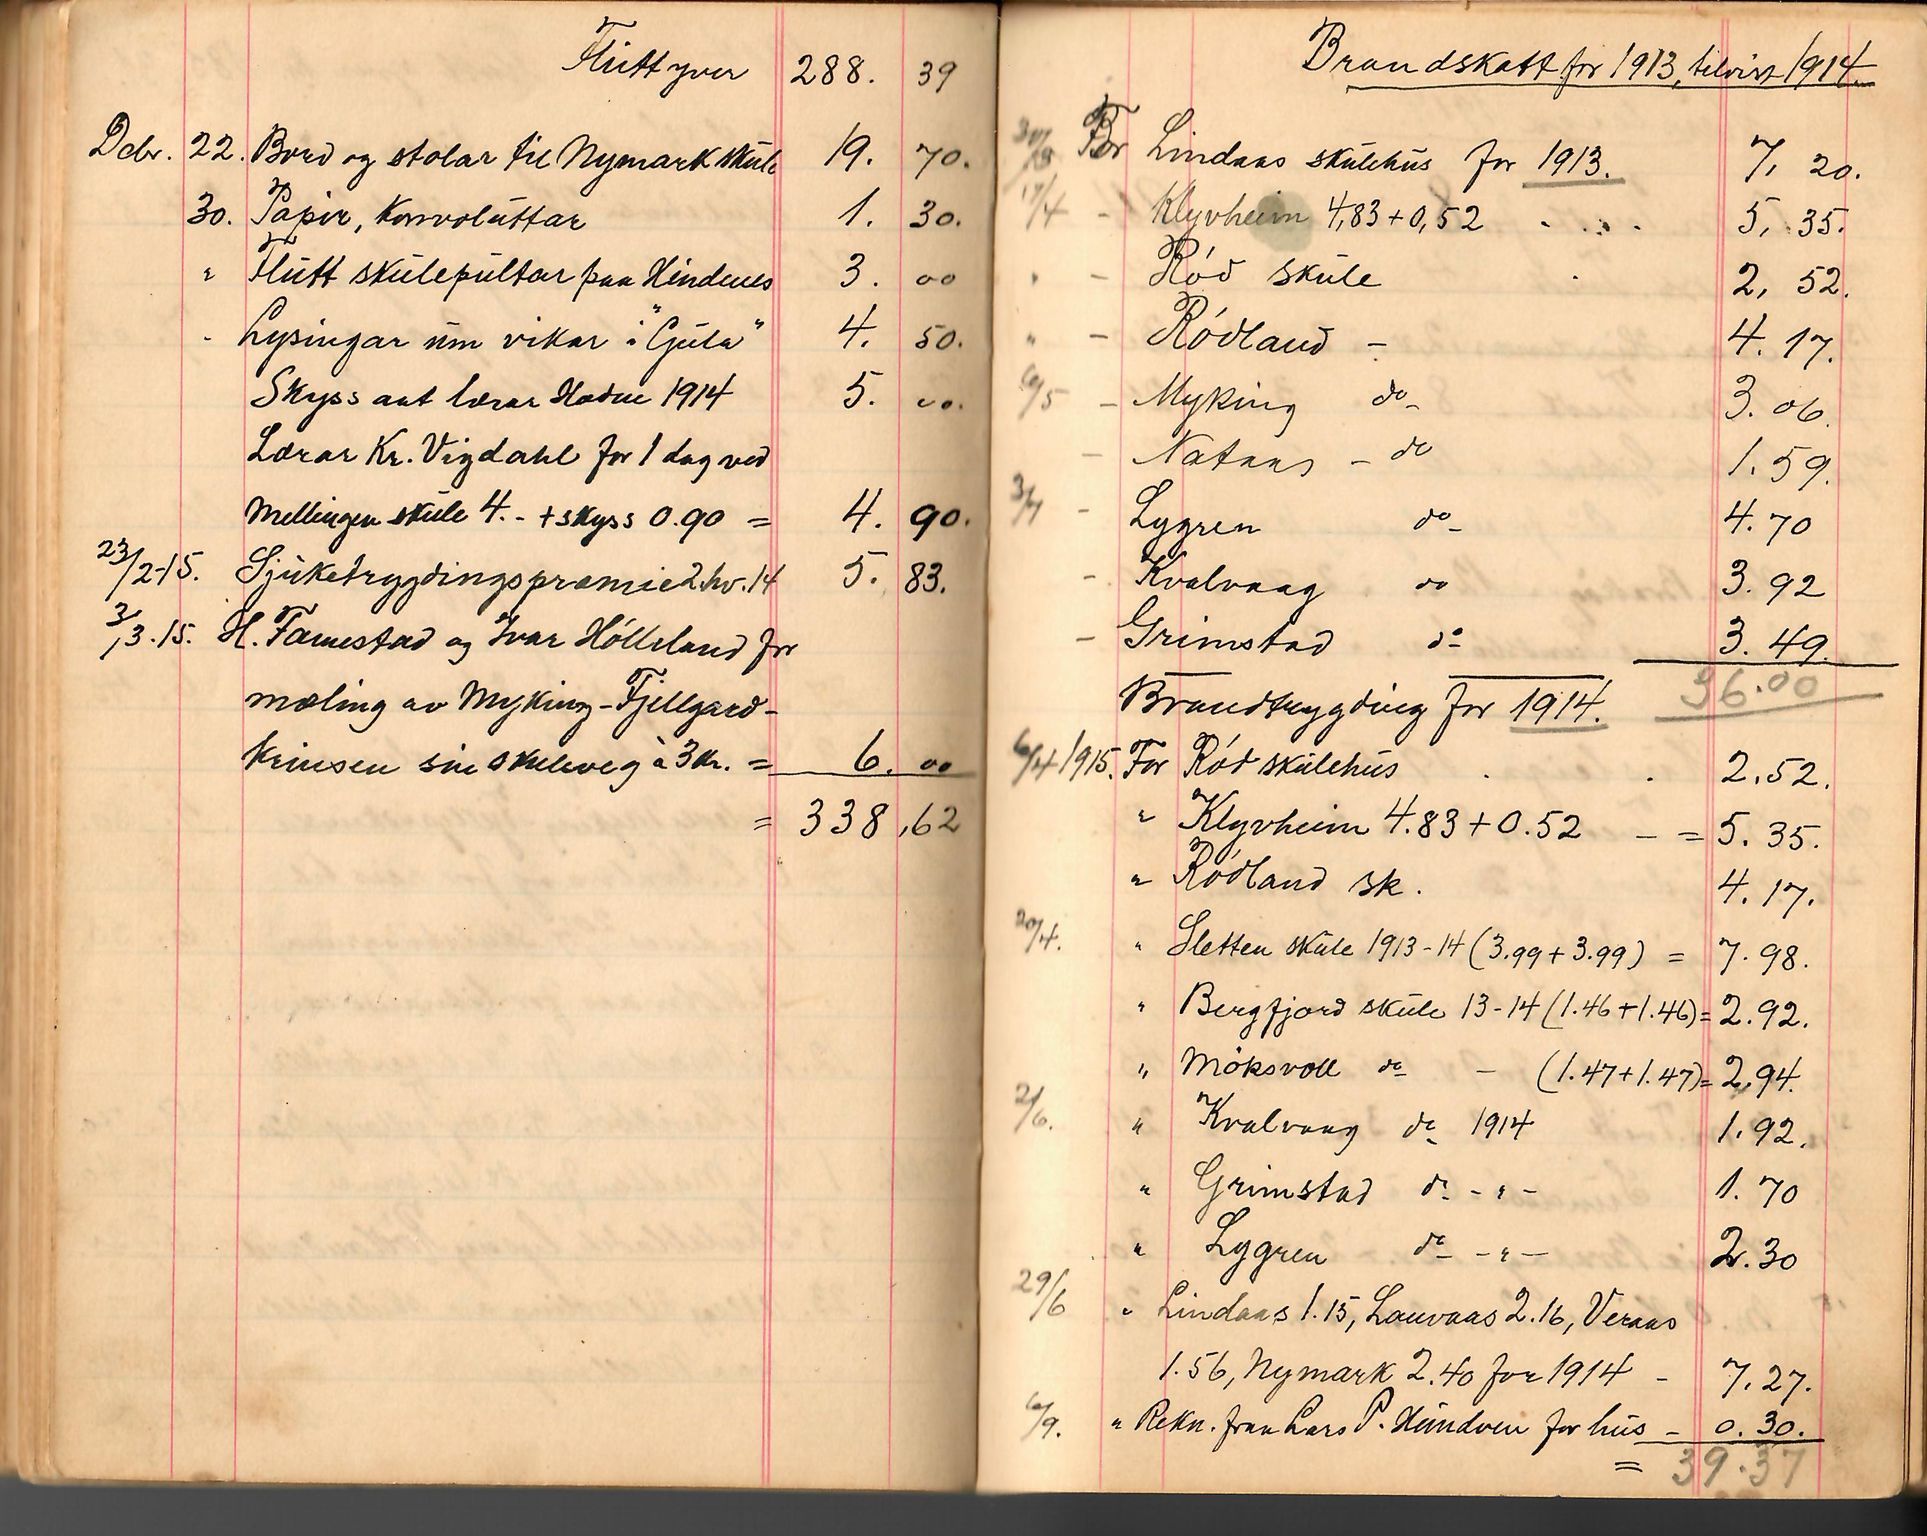 Flutt yver 288. 39
Dcbr. 22. Bord og stolar til Nymark skule 19. 70.
30. Papir, Konvoluttar 1. 30.
" Flutt skulepultar paa Hindenes 3. 00
- Lysingar um vikar i "Gula" 4. 50.
Skyss aat lærar Hodne 1914 5. 00.
Lærar Kr. Vigdahl for 1 dag ved
Mellingen skule 4.- + skyss 0.90 = 4. 90.
23/2-15. Sjuketrygdingspræmie 2.hv. 14 5. 83.
3/3.15. H. Fammestad og Ivar Hölleland for
mæling av Myking-Fjellgard-
krinsen sin skuleveg à 3 Kr. = 6. 00
= 338,62
Brandskatt for 1913, tilvist 1914.
For Lindaas skulehus for 1913. 7, 20.
17/4 - Klyvheim 4,83+0,52 . . . 5, 35.
" - Röd skule 2, 52.
" - Rödland - 4. 17.
6/5 - Myking do 3. 06.
- Nataas - do 1. 59.
3/7 - Lygren do 4. 70
- Kvalvaag do 3. 92
- Grimstad do 3. 49.
36.00
Brandtrygding for 1914.
6/4 1915. For Röd skulehus . . 2.52.
" Klyvheim 4.83 + 0.52 - = 5. 35.
" Rödland sk. 4. 17.
20/4. " Sletten skule 1913-14 (3.99 + 3.99) = 7. 98.
" Bergfjord skule 13-14 (1.46 + 1.46) = 2.92.
" Möksvoll do - (1.47+1.47) = 2,94.
2/6. " Kvalvaag do 1914 1. 92.
" Grimstad do - " - 1. 70
" Lygren do - " - 2. 30
29/6 " Lindaas 1.15, Lauvaas 2.16, Veraas
1.56, Nymark 2.40 for 1914 - 7. 27.
6/9. " Rekn. fraa Lars P. Hundven for hus - 0. 30.
= 39.37